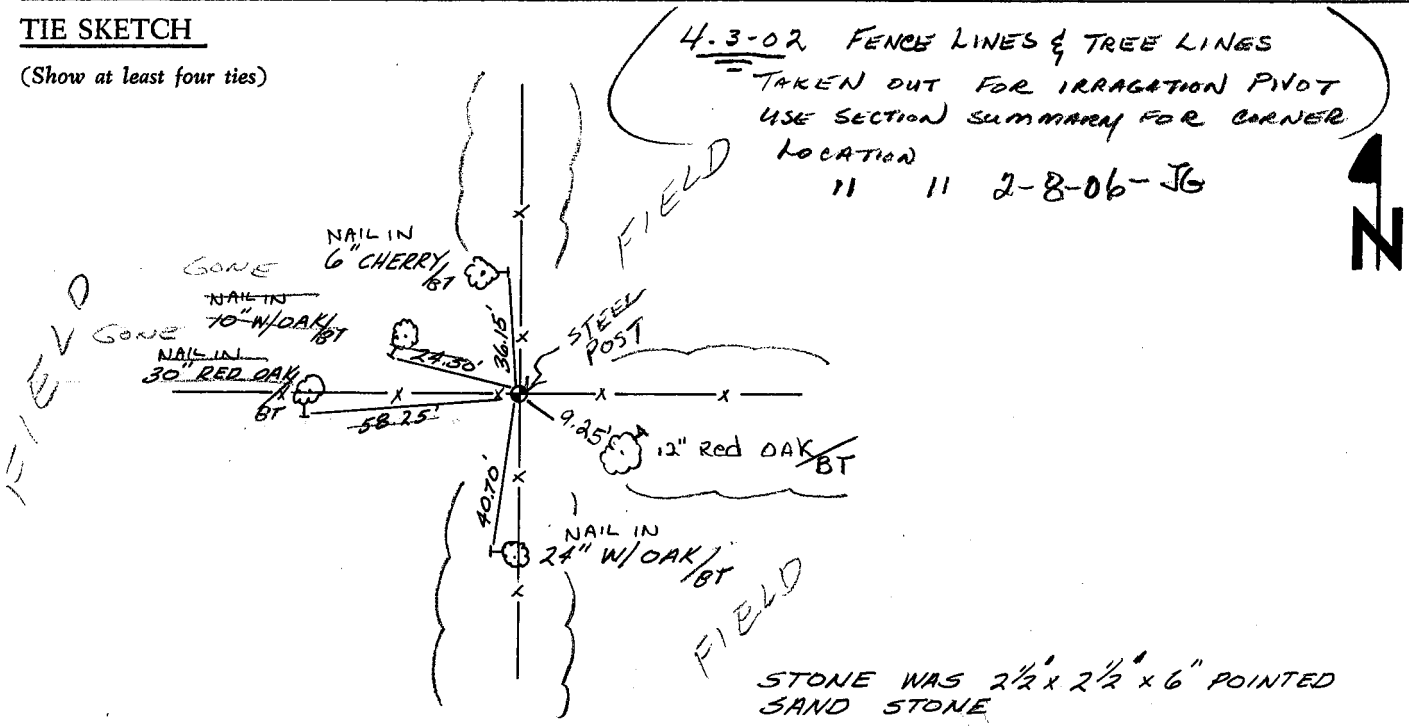 TIE SKETCH
(Show at least four ties)
4-3-02 FENCE LINES & TREE LINES
TAKEN OUT FOR IRRAGATION PIVOT
USE SECTION SUMMARY FOR CORNER
LOCATION
" " 2-8-06-JG
N
FIELD
NAIL IN
6" CHERRY/BT
GONE
NAIL IN
10" W/OAK/BT
GONE
NAIL IN
30" RED OAK/BT
FIELD
24.50'
36.15'
STEEL
POST
58.25'
9.25'
12" Red OAK/BT
40.70'
NAIL IN
24" W/OAK/BT
FIELD
STONE WAS 2 1/2" x 2 1/2" x 6" POINTED
SAND STONE